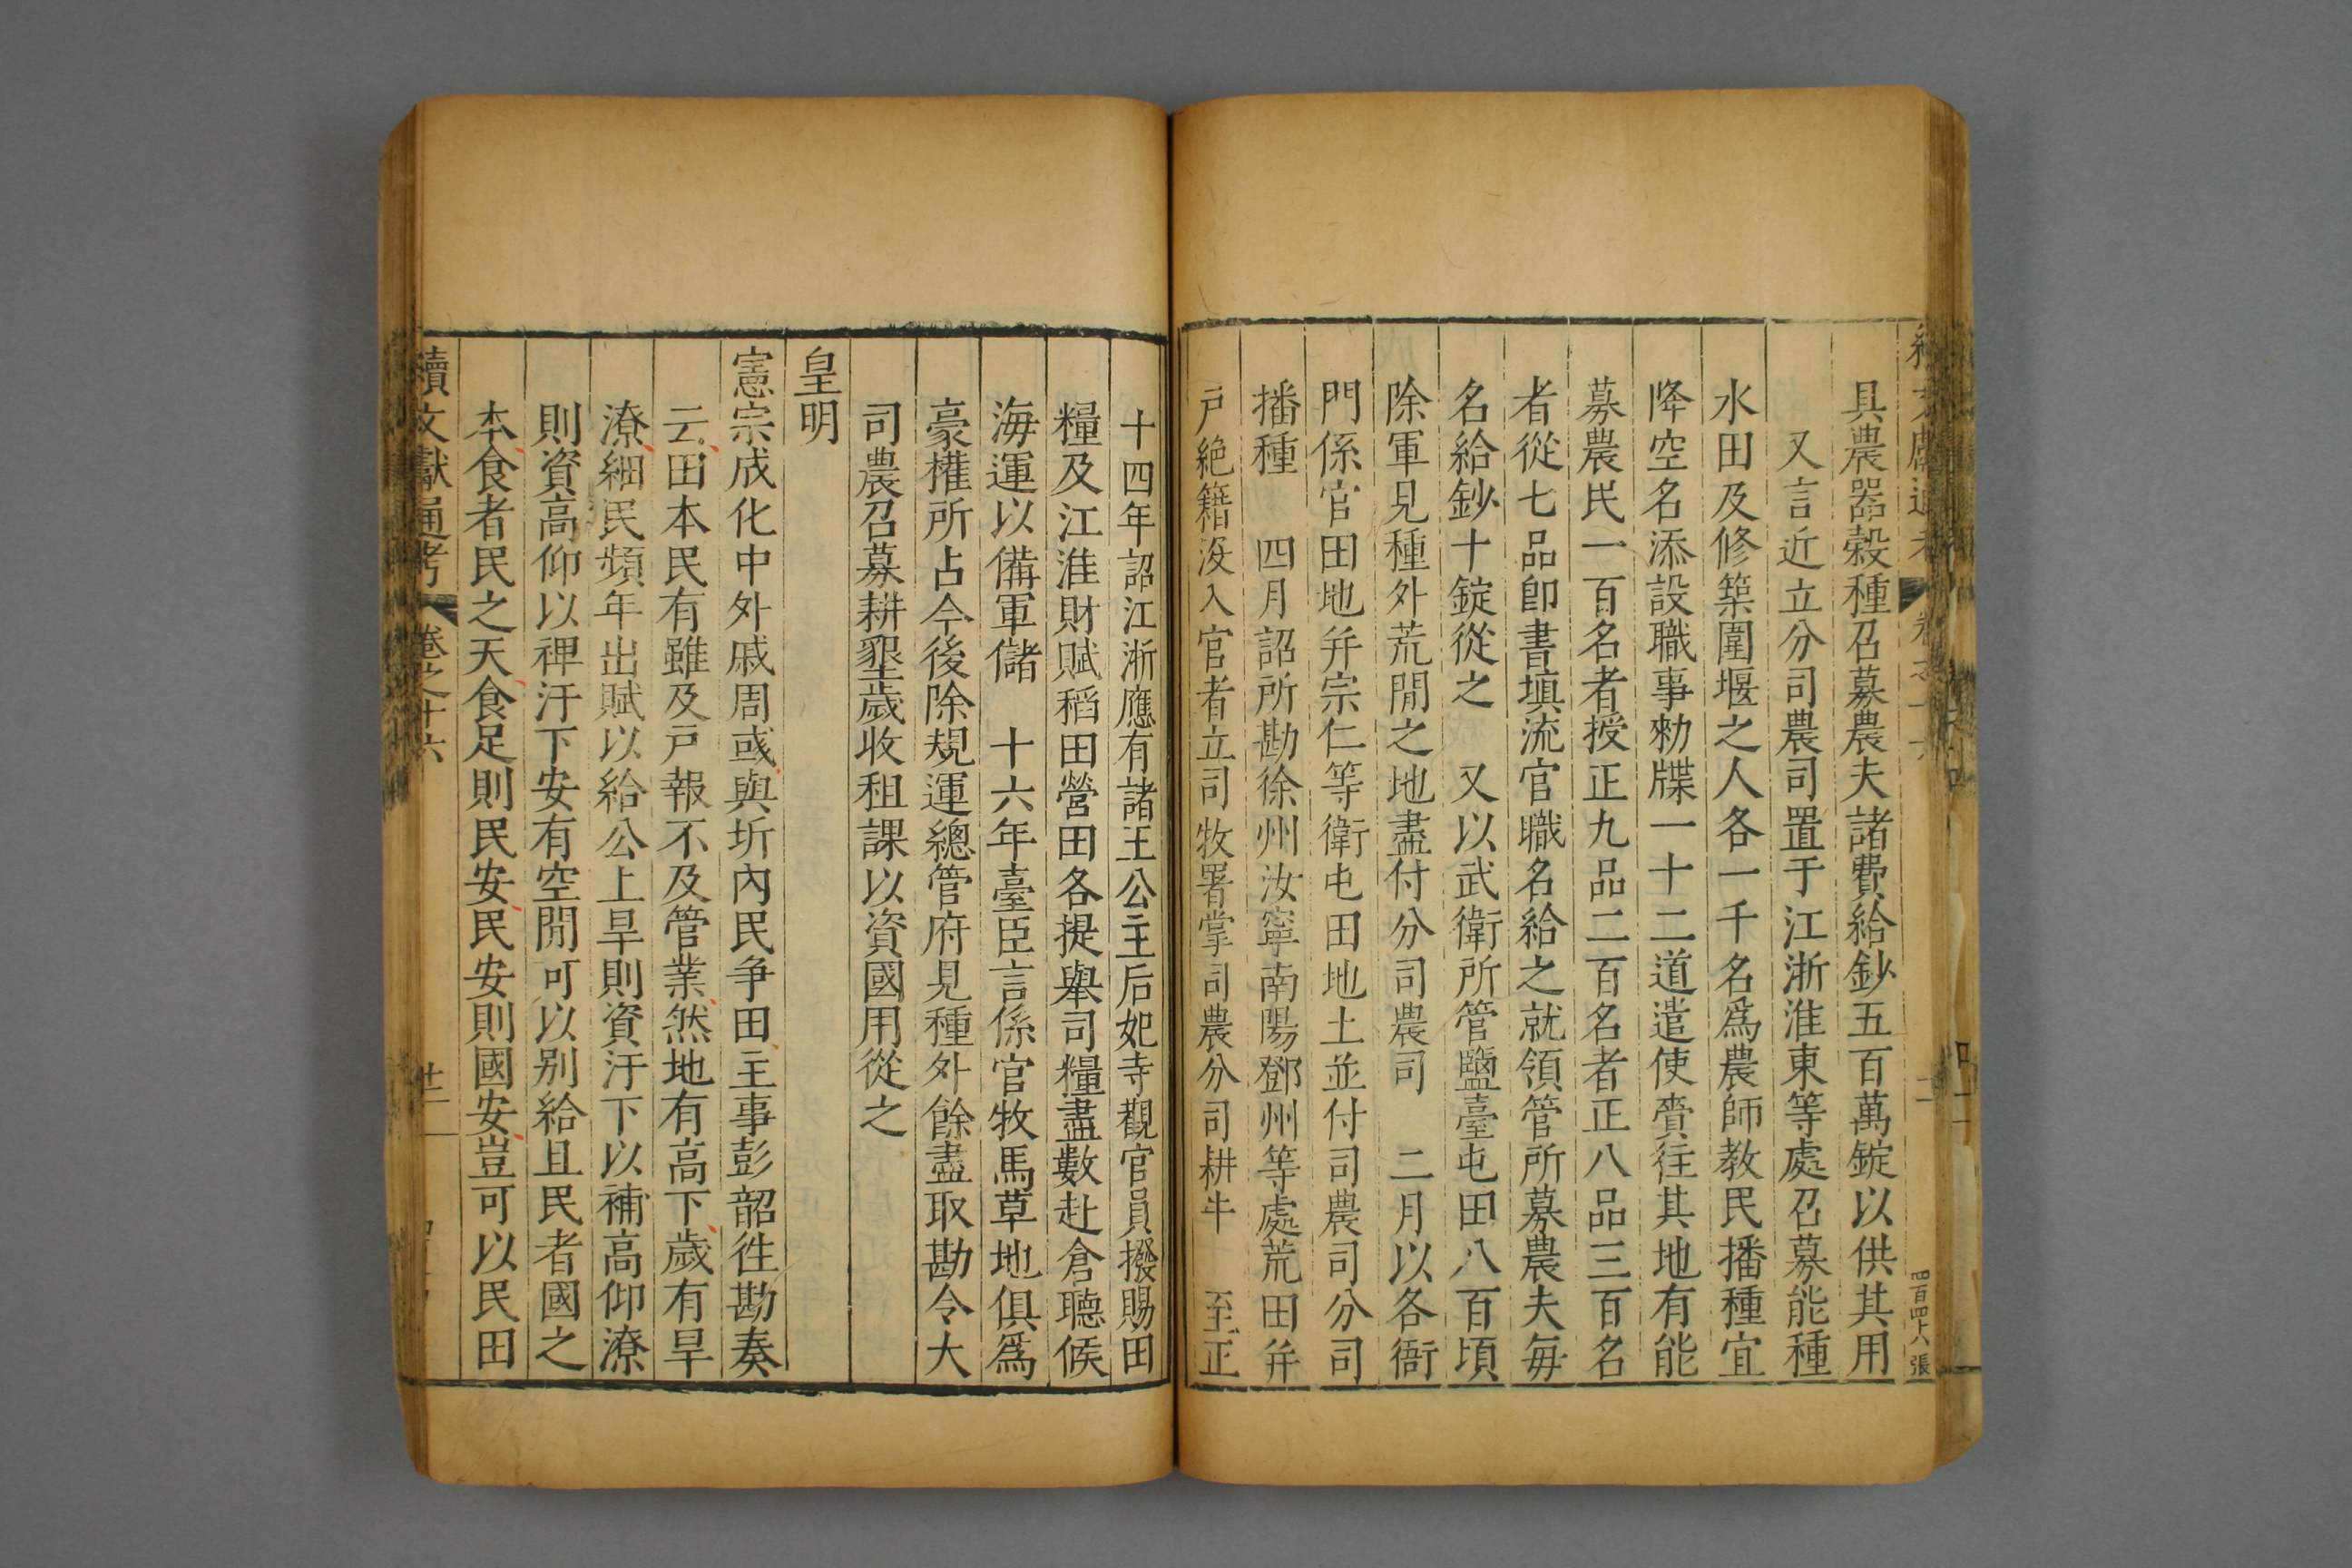 具農器穀種召募農夫諸費給鈔五百萬錠以供其用
又言近立分司農司置于江浙淮東等處召募能種
水田及修築圍堰之人各一千名爲農師教民播種宜
降空名添設職事勑牒一十二道遣使賫往其地有能
募農民一百名者授正九品二百名者正八品三百名
者從七品卽書塡流官職名給之就領管所募農夫每
名給鈔十錠從之　又以武衛所管鹽臺屯田八百頃
除軍見種外荒閒之地盡付分司農司　二月以各衙
門係官田地并宗仁等衛屯田地土並付司農司分司
播種　四月詔所勘徐州汝寧南陽鄧州等處荒田并
戸絶籍沒入官者立司牧署掌司農分司耕牛　至正
十四年詔江浙應有諸王公主后妃寺觀官員撥賜田
糧及江淮財賦稻田營田各提舉司糧盡數赴倉聽候
海運以備軍儲　十六年臺臣言係官牧馬草地俱爲
豪權所占今後除規運總管府見種外餘盡取勘令大
司農召募耕墾歲收租課以資國用從之
皇明
憲宗成化中外戚周彧與圻內民爭田主事彭韶徃勘奏
云田本民有雖及戸報不及管業然地有高下歲有旱
潦細民頻年出賦以給公上旱則資汙下以補高仰潦
則資高仰以裨汙下安有空閒可以别給且民者國之
本食者民之天食足則民安民安則國安豈可以民田
續文獻通考　卷之十六　廿二